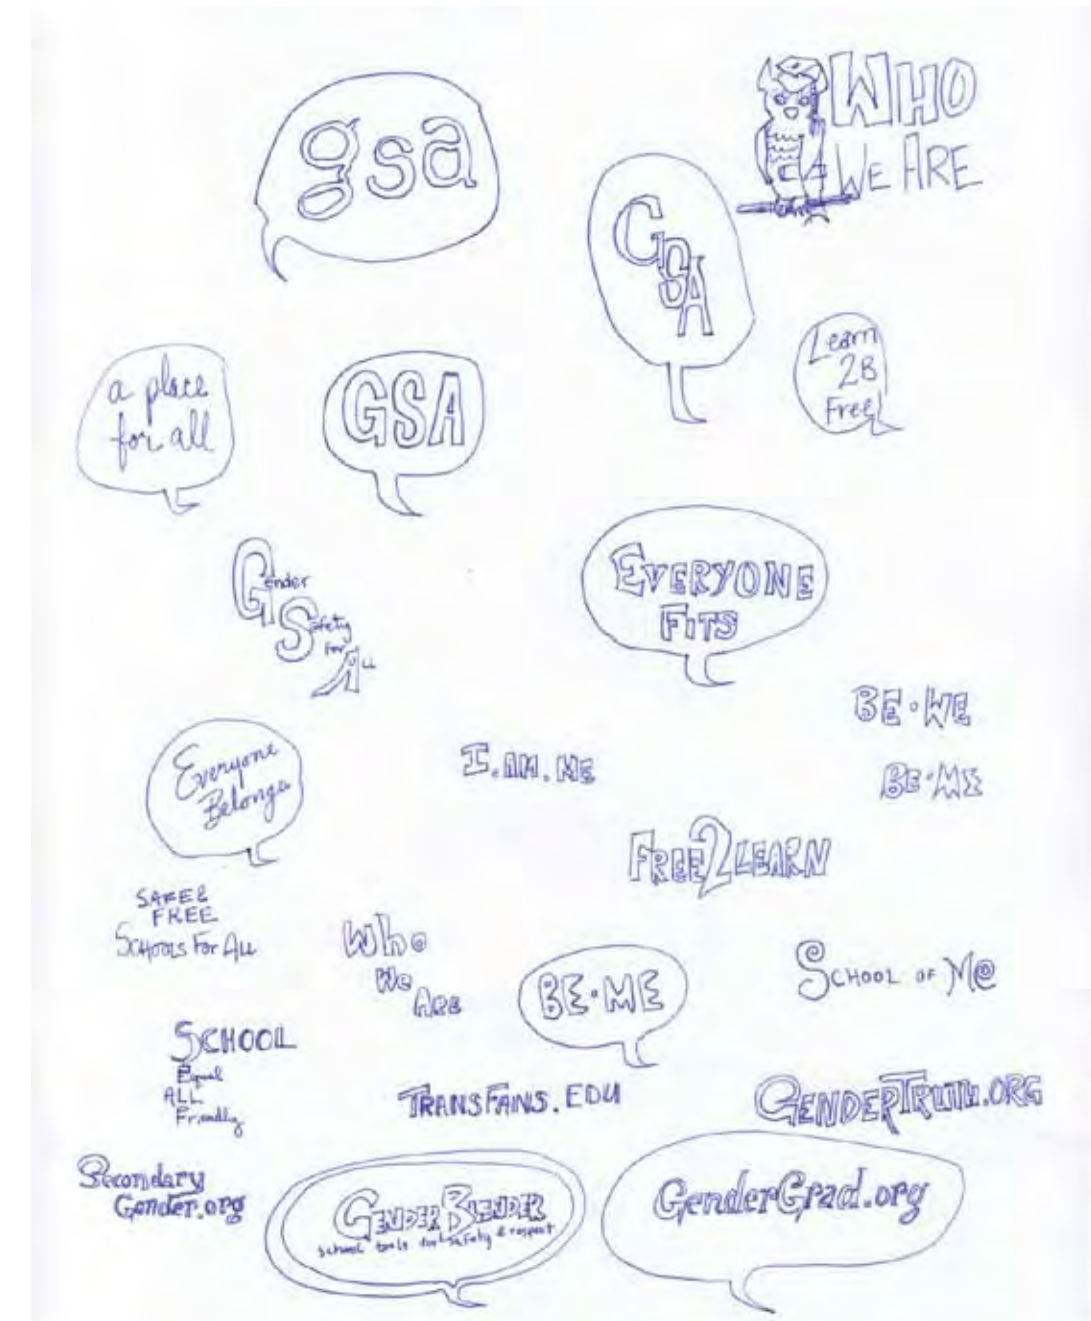 gsa
WHO
WE ARE
GSA
Learn
2B
Free!
a place
for all
GSA
Gender
Safety
For
ALL
EVERYONE
FITS
BE·WE
Everyone
Belongs
I.AM.ME
BE·ME
FREE2LEARN
SAFE &
FREE
SCHOOLS FOR ALL
Who
We
Are
BE·ME
SCHOOL OF Me
SCHOOL
Equal
ALL
Friendly
TRANSFANS.EDU
GENDERTRUTH.ORG
Secondary
Gender.org
GENDERBLENDER
school tools for safety & respect
GenderGrad.org